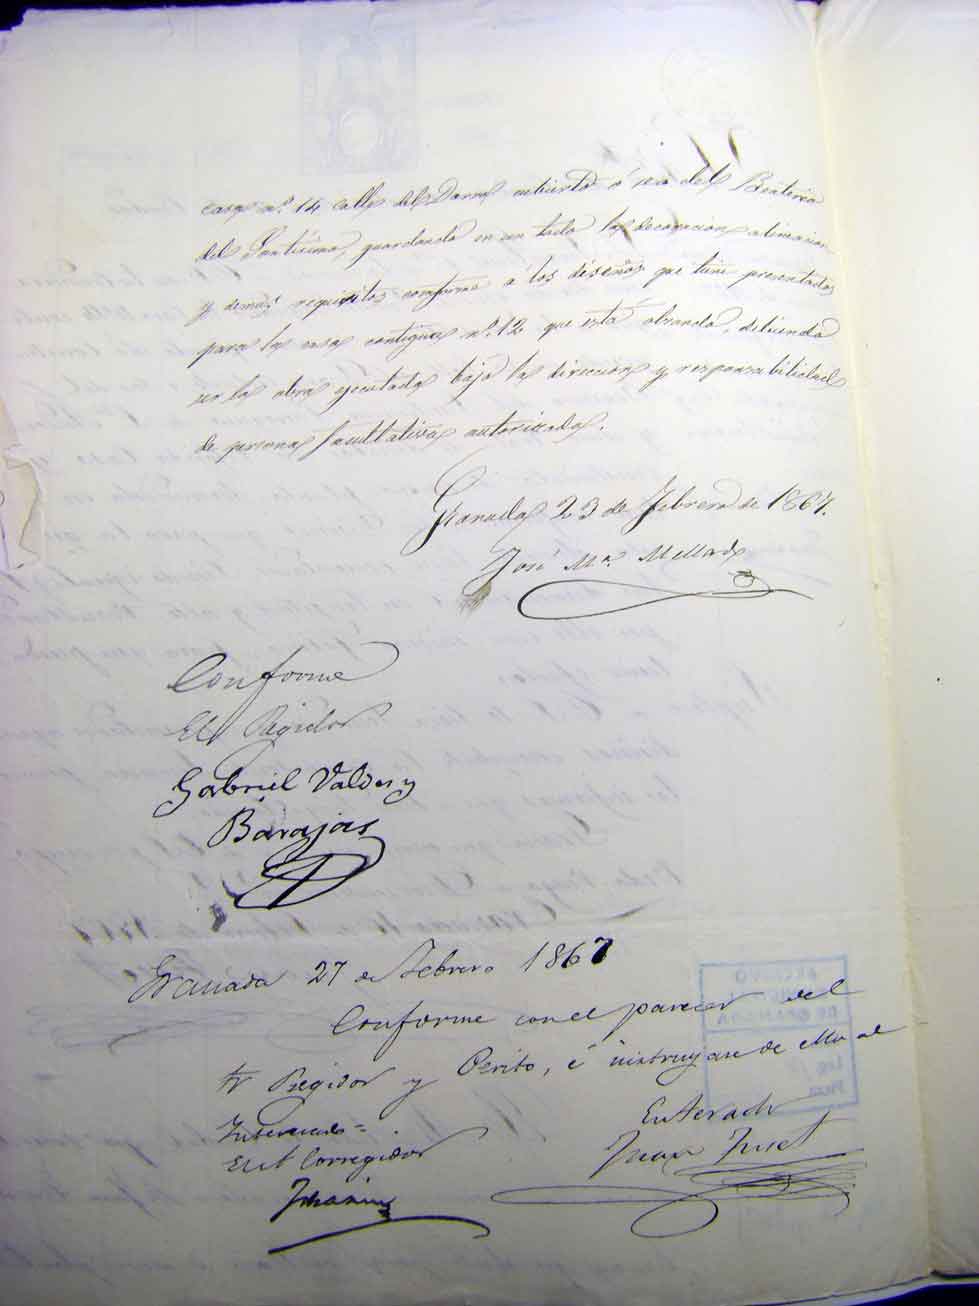 casa n.º 14 calle del Darro cubierto ó sea del Beaterio
del Santísimo, guardando en un todo la decoracion, alineacion
y demas requisitos conforme á los diseños que tiene presentados
para la casa contigua n.º 12 que está obrando, debiendo
ser la obra ejecutada bajo la direccion y responsabilidad
de persona facultativa autorizada.
Granada 23 de Febrero de 1867.
José M.ª Mellado
Conforme
El Regidor
Gabriel Valdes y
Barajas
Granada 27 de Febrero 1867
Conforme con el parecer del
Sr Regidor y Perito, é instruyase de ello al
Interesado =
El Corregidor
Enterado
Juan Juset
ARCHIVO
DE GRANADA
Leg.
Pieza